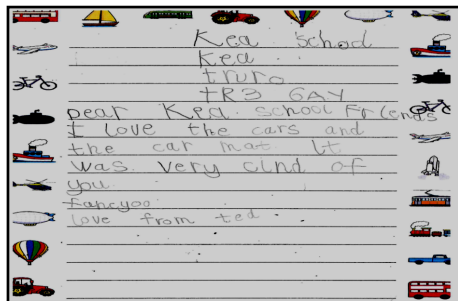 Kea school
Kea
truro
tR3 6AY
Dear Kea school Friends
I love the cars and
the car mat. It
was very cind of
you.
fancyoo
love from ted